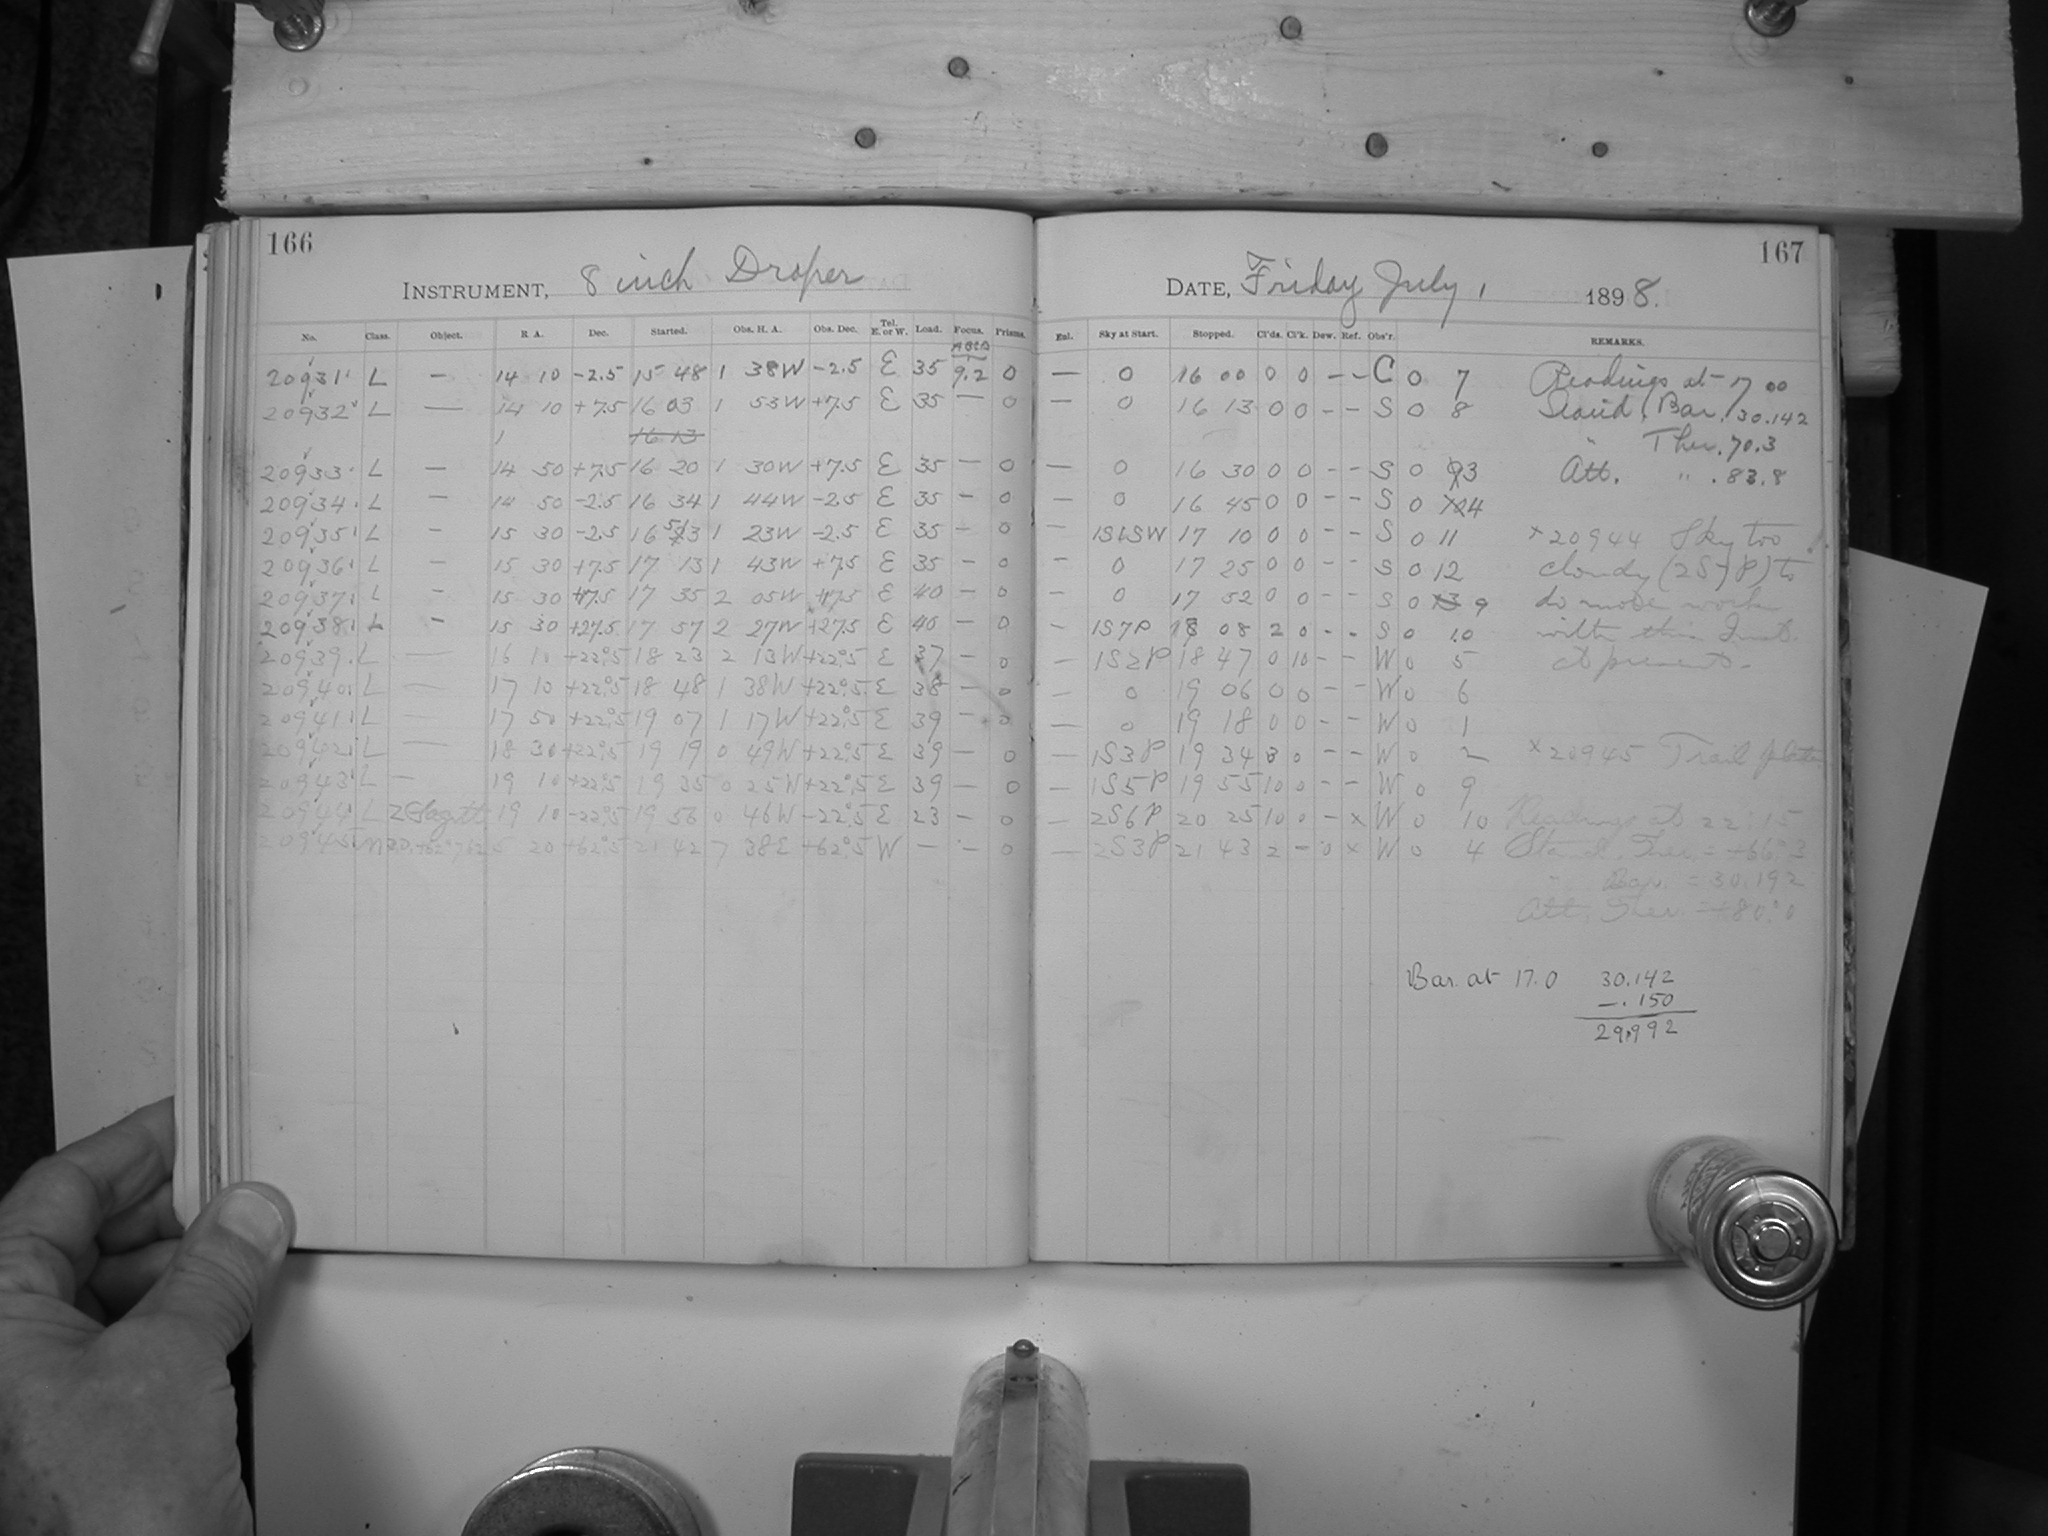 166
INSTRUMENT, 8 inch Draper
No. Class. Object. R. A. Dec. Started. Obs. H. A. Obs. Dec. Tel. E. or W. Load. Focus. Prisms.
20931 L — 14 10 -2.5 15 48 1 38W -2.5 E 35 9.2 0
20932 L — 14 10 +7.5 16 03 1 53W +7.5 E 35 — 0
16 13
20933 L — 14 50 +7.5 16 20 1 30W +7.5 E 35 — 0
20934 L — 14 50 -2.5 16 34 1 44W -2.5 E 35 — 0
20935 L — 15 30 -2.5 16 53 1 23W -2.5 E 35 — 0
20936 L — 15 30 +7.5 17 13 1 43W +7.5 E 35 — 0
20937 L — 15 30 +17.5 17 35 2 05W +17.5 E 40 — 0
20938 L — 15 30 +27.5 17 57 2 27W +27.5 E 40 — 0
20939 L — 16 10 +22°.5 18 23 2 13W +22°.5 E 37 — 0
20940 L — 17 10 +22°.5 18 48 1 38W +22°.5 E 38 — 0
20941 L — 17 50 +22°.5 19 07 1 17W +22°.5 E 39 — 0
20942 L — 18 30 +22°.5 19 19 0 49W +22°.5 E 39 — 0
20943 L — 19 10 +22°.5 19 35 0 25W +22°.5 E 39 — 0
20944 L Z Sagitt 19 10 -22°.5 19 56 0 46W -22°.5 E 23 — 0
20945 20 +62°.5 21 42 7 38E +62°.5 W — — 0
167
DATE, Friday July 1 1898.
Enl. Sky at Start. Stopped. Cl'ds. Cl'k. Dew. Ref. Obs'r. REMARKS.
— 0 16 00 0 0 - - C 0 7 Readings at 17 00
— 0 16 13 0 0 - - S 0 8 Bar. 30.142
Ther. 70.3
— 0 16 30 0 0 - - S 0 3 Att. " . 83.8
— 0 16 45 0 0 - - S 0 4
— 1S1SW 17 10 0 0 - - S 0 11 ×20944 Sky too
— 0 17 25 0 0 - - S 0 12 cloudy (2S7P) to
— 0 17 52 0 0 - - S 0 13 9 do more work
— 1S7P 18 08 2 0 - - S 0 10 with this Inst.
— 1S2P 18 47 0 10 - - W 0 5 at present.
— 0 19 06 0 0 - - W 0 6
— 0 19 18 0 0 - - W 0 1
— 1S3P 19 34 8 0 - - W 0 2 ×20945 Trail plate
— 1S5P 19 55 10 0 - - W 0 9
— 2S6P 20 25 10 0 - × W 0 10 Readings at 22:15
— 2S3P 21 43 2 - 0 × W 0 4 Stand. Ther. = +66°.3
" Bar. = 30.192
Att. Ther. = +80°.0
Bar. at 17.0 30.142
-.150
29.992